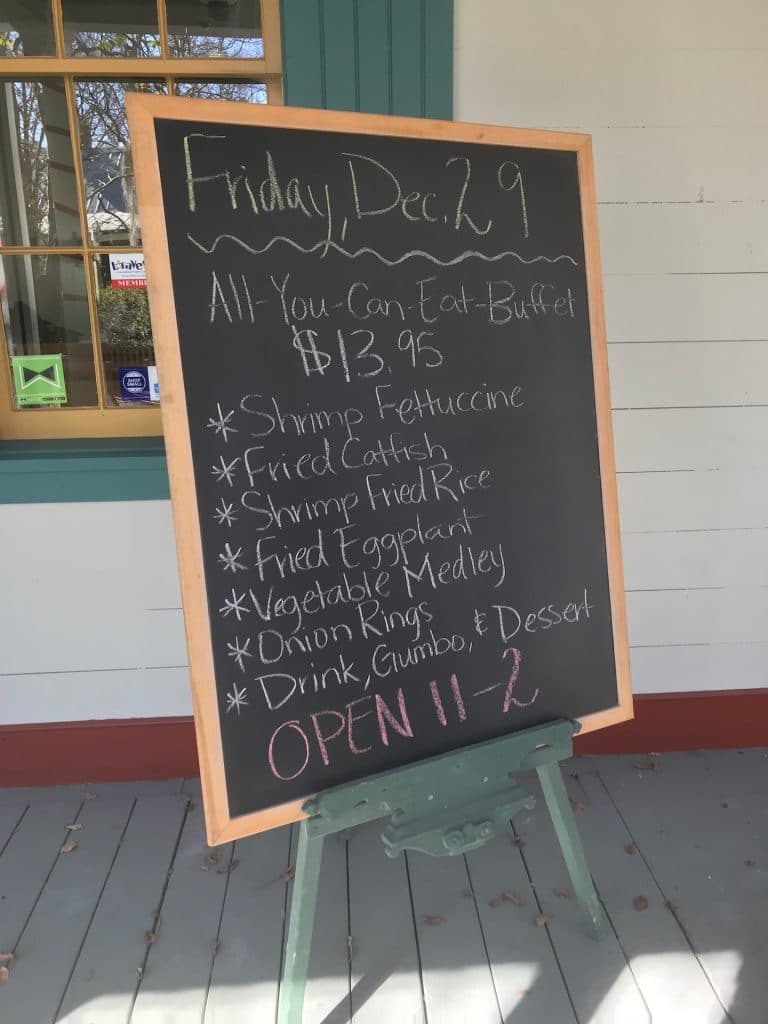 Friday, Dec. 29
All-You-Can-Eat-Buffet
$13.95
* Shrimp Fettuccine
* Fried Catfish
* Shrimp Fried Rice
* Fried Eggplant
* Vegetable Medley
* Onion Rings
* Drink, Gumbo, & Dessert
OPEN 11-2
SHOP
SMALL